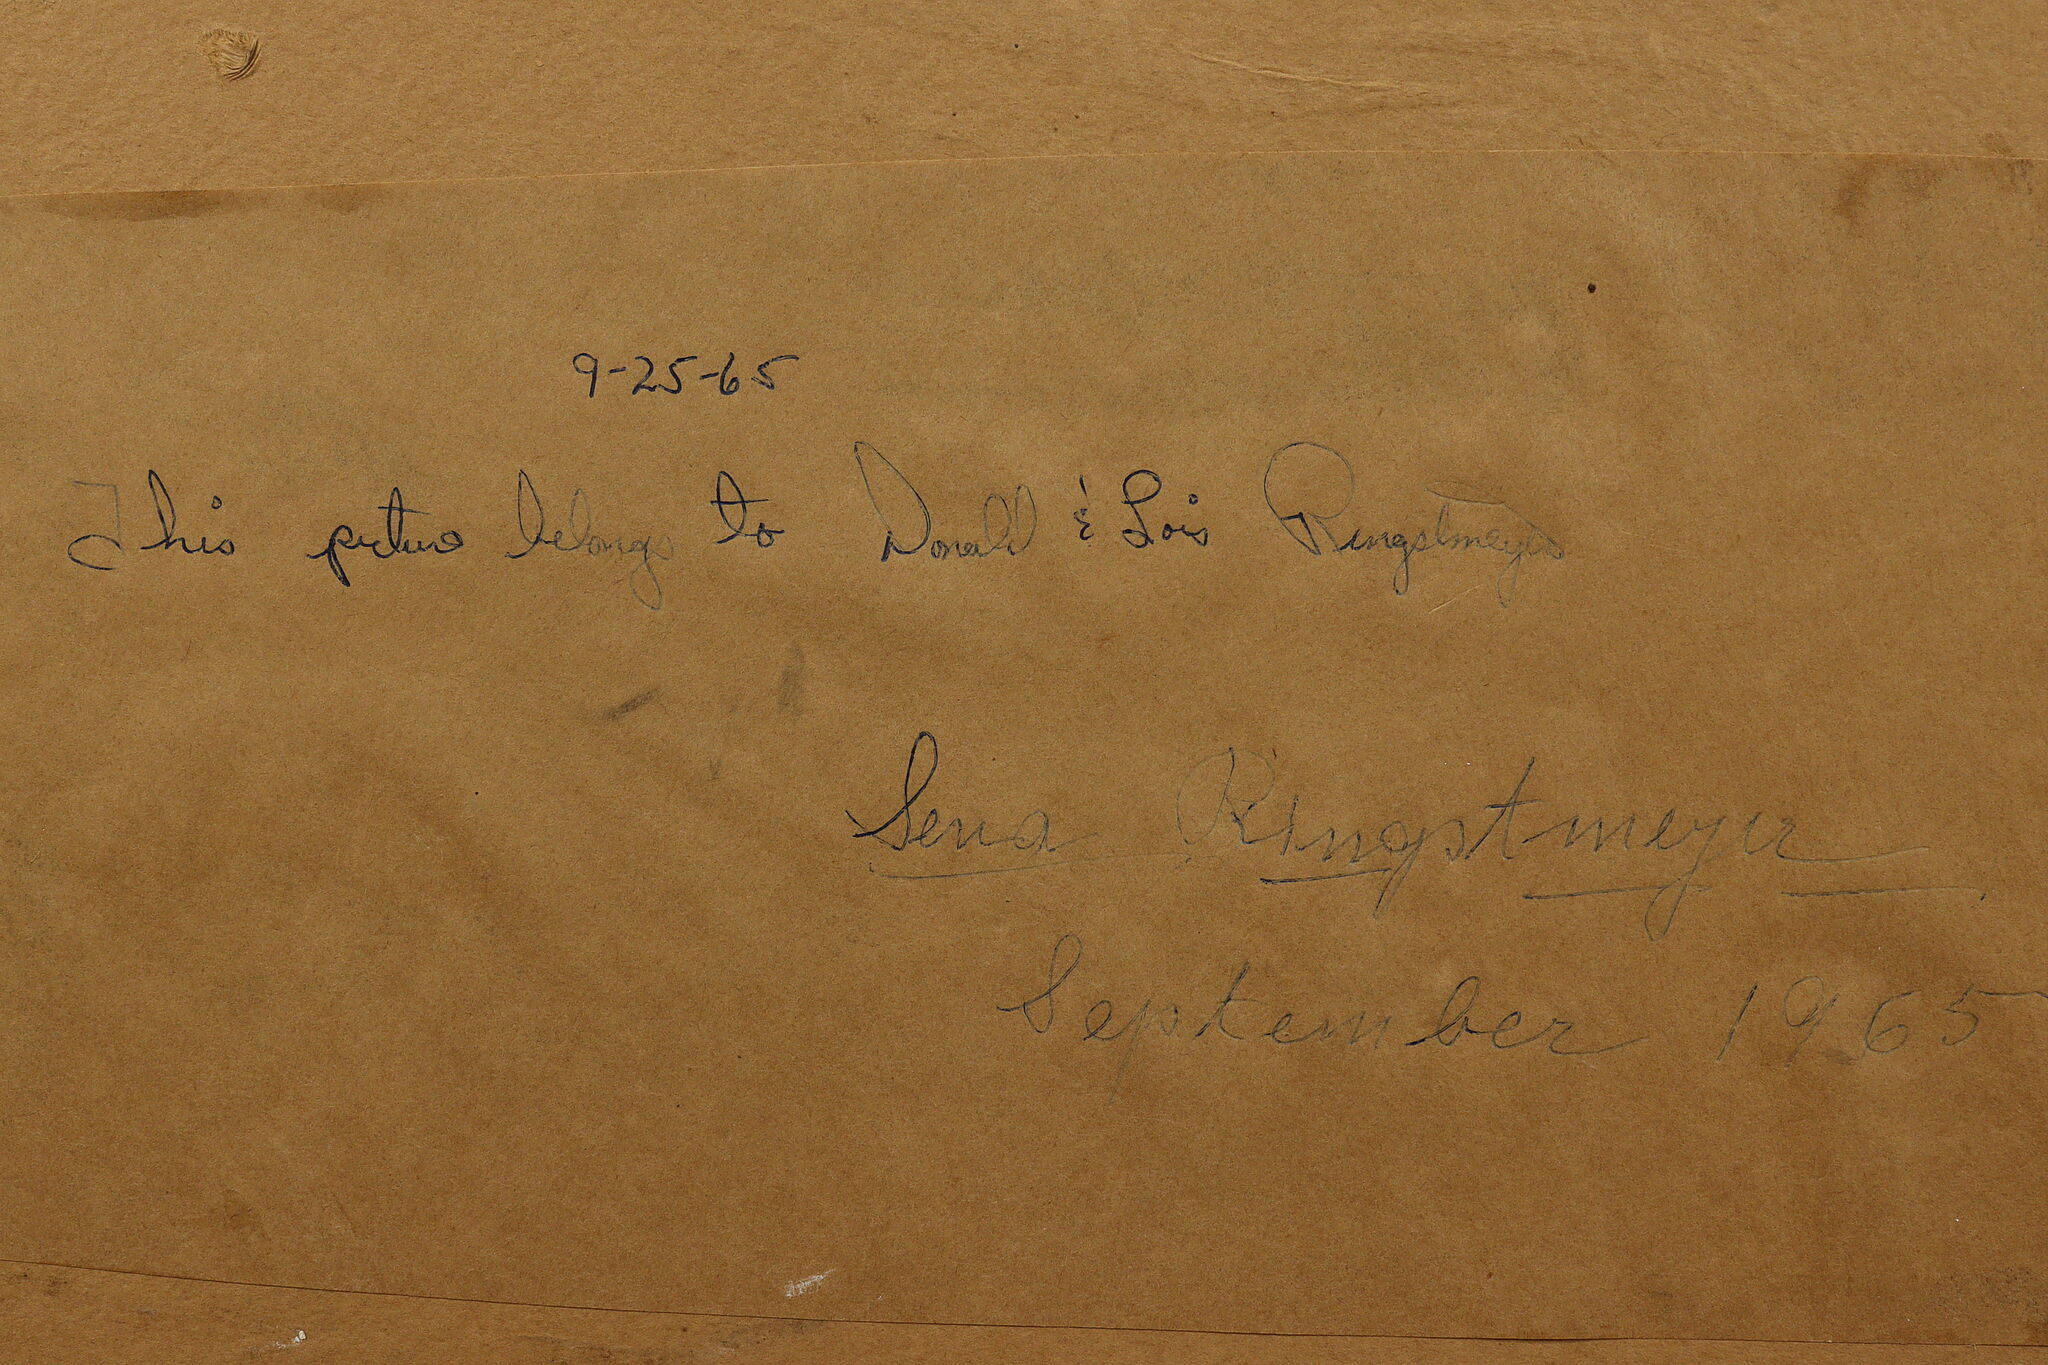 9-25-65
This picture belongs to Donald & Lois Ringstmeyer
Sena Ringstmeyer
September 1965